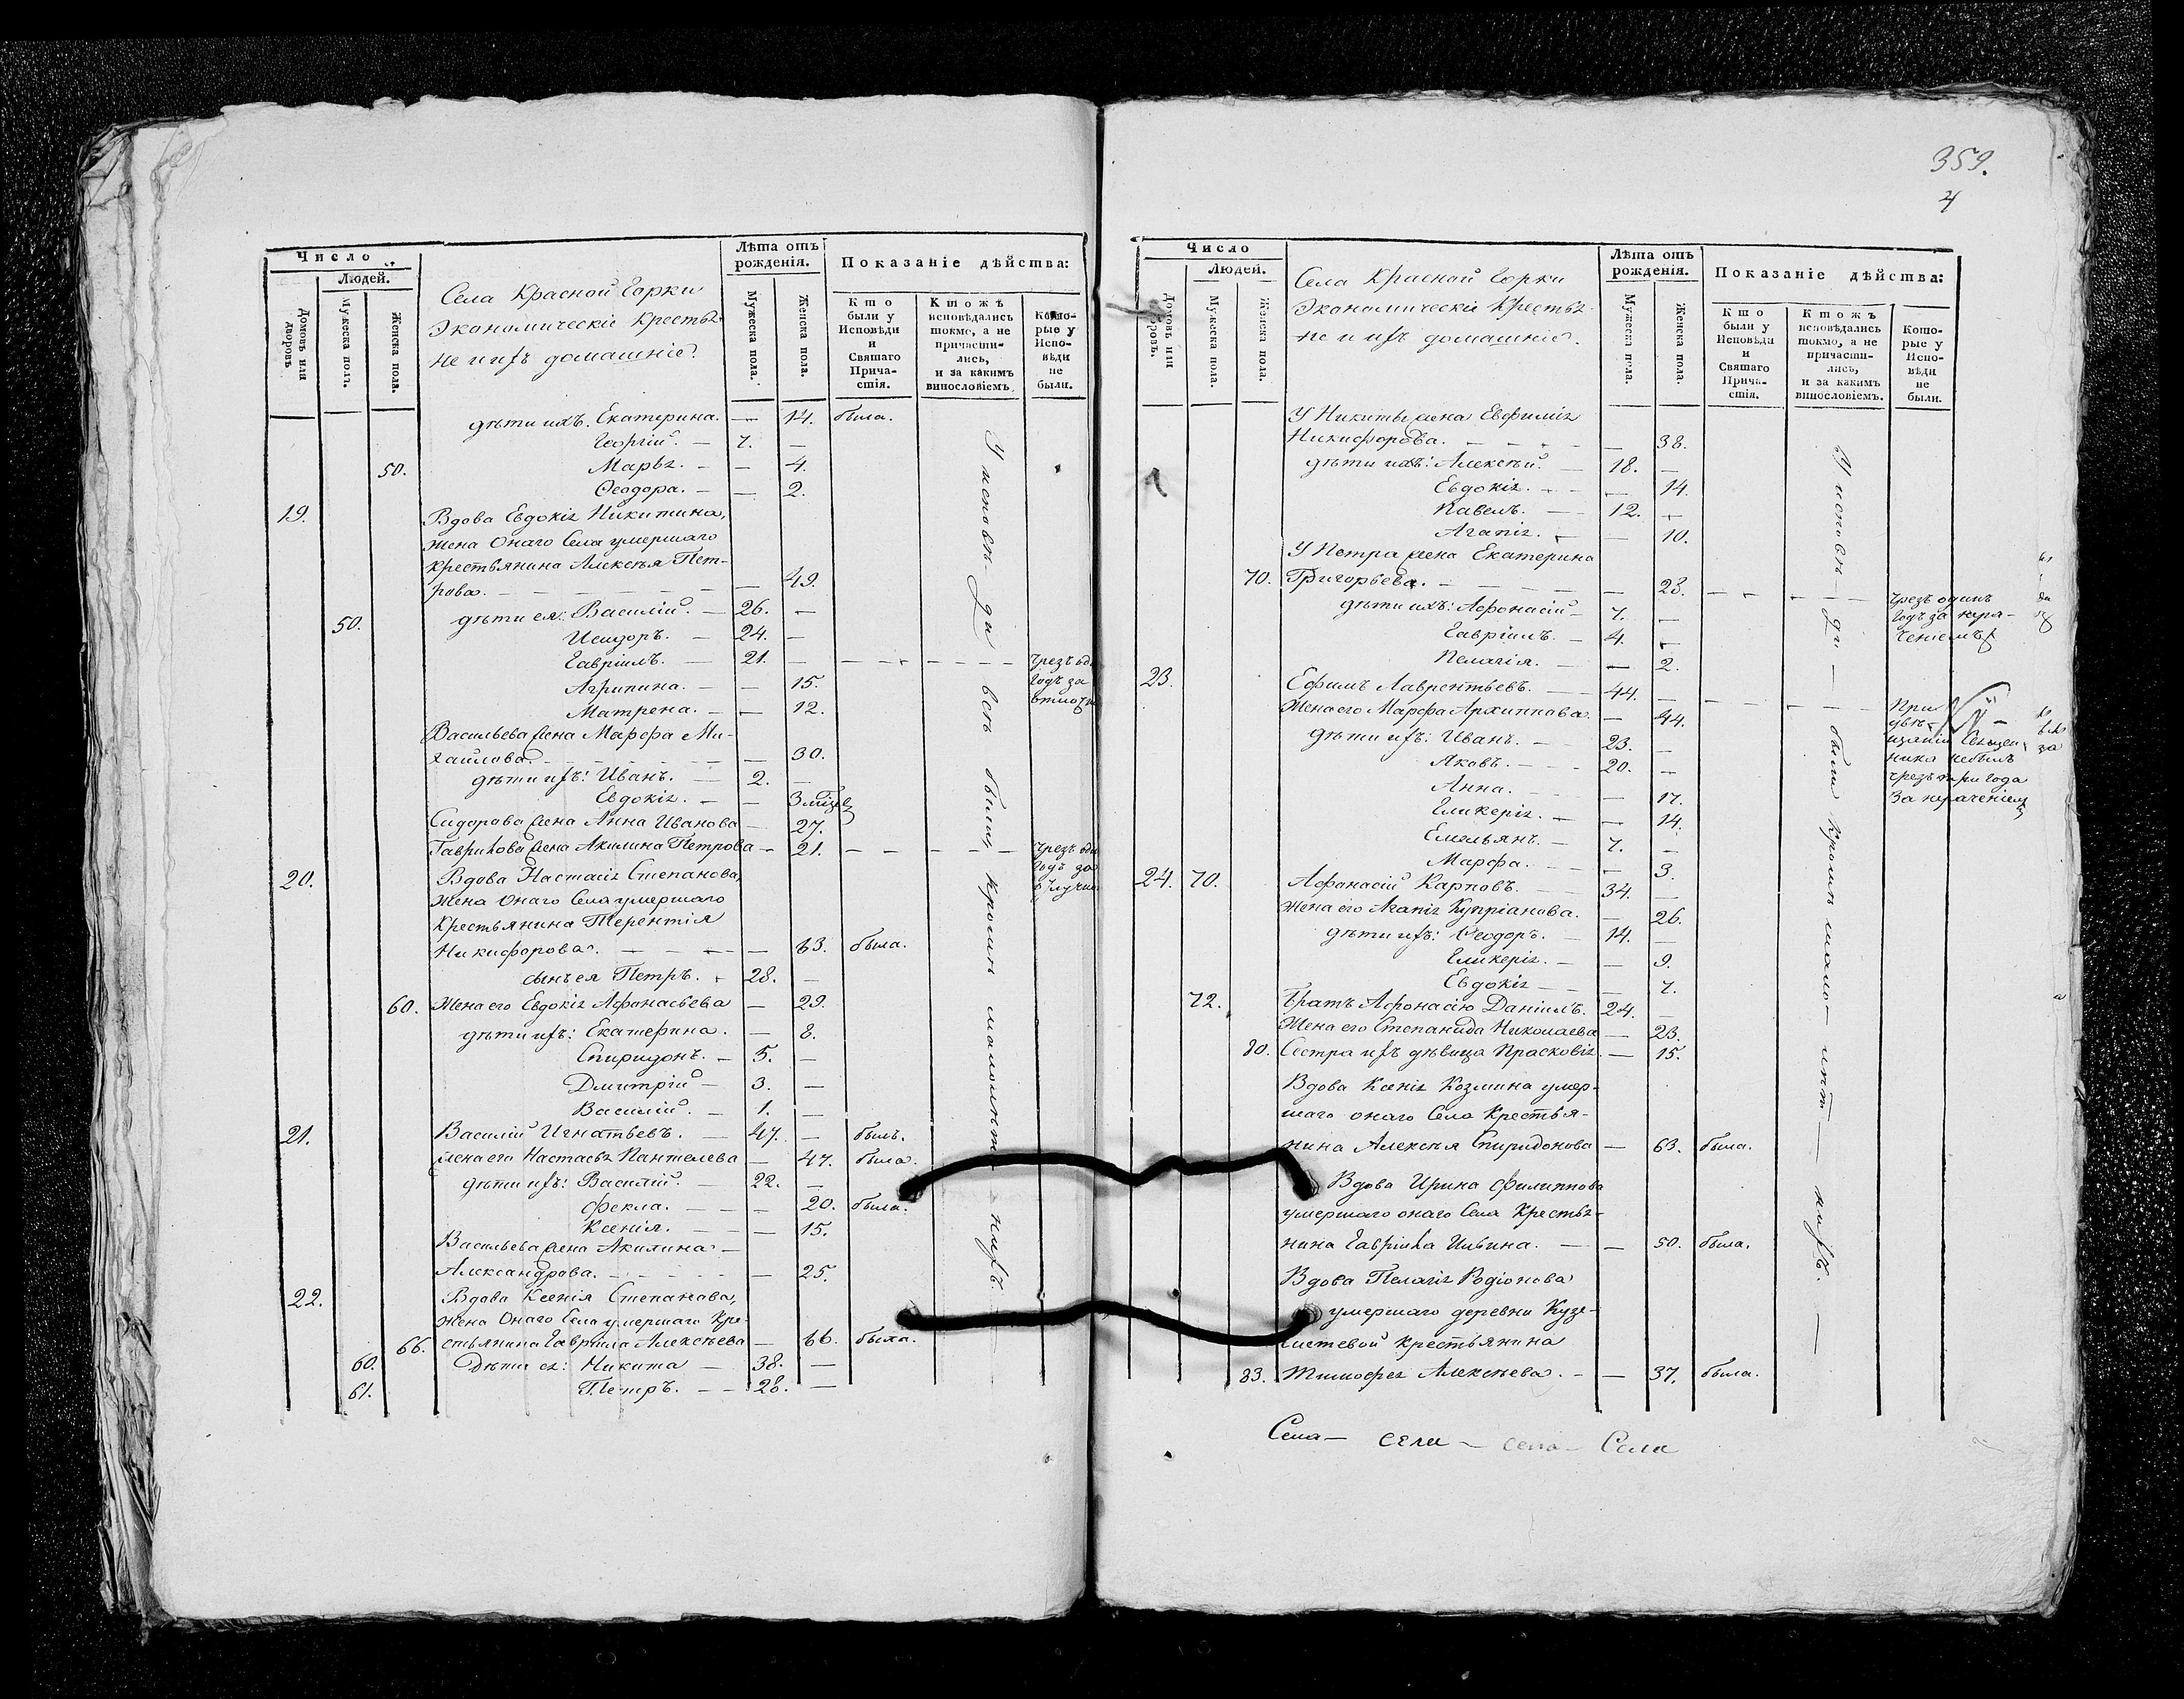 Число
Людей.
Домовъ или дворовъ
Мужеска полъ.
Женска пола.
Села Красной Горки
Экономическіе Крестья-
не и ихъ домашніе.
Лѣта отъ рожденія.
Мужеска пола.
Женска пола.
Показаніе дѣйства:
Кто были у Исповѣди и Святаго Причастія.
Ктожъ исповѣдались токмо, а не причасти-лись, и за какимъ винословіемъ.
Кото-рые у Испо-вѣди не были.
дѣти ихъ. Екатерина. — 14. была.
Георгій. — 7. —
50. Марья. — — 4.
Ѳеодора. — — 2.
19. Вдова Евдокія Никитина,
жена Онаго Села умершаго
крестьянина Алексѣя Пет-
рова. — — 49.
дѣти ея: Василій. — 26. —
50. Исидоръ. — 24. —
Гавріилъ. — 21. — чрезъ
годъ за
Агрипина. — — 15.
Матрена. — — 12.
Васильева жена Марфа Ми-
хайлова. — — 30.
дѣти ихъ: Иванъ. — 2. —
Евдокія. — — 3 мѣсец
Сидорова жена Анна Иванова — 27.
Гаврилова жена Акилина Петрова — 21. — чрезъ
годъ за
20. Вдова Настасія Степанова,
жена Онаго Села умершаго
Крестьянина Терентія
Никифорова. — — 63. была.
сынъ ея Петръ. — 28. —
60. Жена его Евдокія Афонасьева — 29.
дѣти ихъ: Екатерина. — 8.
Спиридонъ. — 5. —
Дмитрій — 3. —
Василій. — 1. —
21. Василій Игнатьевъ. — 47. — былъ.
жена его Настасья Пантелева — 47. была.
дѣти ихъ: Василій. — 22. —
Фекла. — — 20. была.
Ксенія. — — 15.
Васильева жена Акилина —
Александрова. — — 25.
22. Вдова Ксенія Степанова,
жена Онаго Села умершаго Кре-
66. стьянина Гаврила Алексѣева — 66. была.
60. Дѣти ея: Никита — 38. —
61. Петръ. — 28. —
У исповѣ- ди всѣ были, кромѣ малолѣтныхъ.
359.
4
Число
Людей.
Домовъ или дворовъ.
Мужеска пола.
Женска пола.
Села Красной Горки
Экономическіе Крестья-
не и ихъ домашніе.
Лѣта отъ рожденія.
Мужеска пола.
Женска пола.
Показаніе дѣйства:
Кто были у Исповѣди и Святаго Прича-стія.
Ктожъ исповѣдались токмо, а не причасти-лись, и за какимъ винословіемъ.
Кото-рые у Испо-вѣди не были.
У Никиты жена Евфимія
Никифорова. — — 38.
дѣти ихъ: Алексѣй. — 18. —
Евдокія. — — 14.
Павелъ. — 12. —
Агапія. — — 10.
У Петра жена Екатерина
70. Григорьева. — — 23. — чрезъ одинъ
годъ за нера-
ченіемъ
дѣти ихъ: Афонасій — 7. —
Гавріилъ. — 4. —
Пелагія. — — 2.
23. Ефимъ Лаврентьевъ. — 44. —
Жена его Марфа Архиппова. — 44.
дѣти ихъ: Иванъ. — 23. —
Яковъ. — 20. —
Анна. — — 17.
Гликерія. — — 14.
Емельянъ. — 7. —
Марфа. — — 3.
ника небылъ
чрезъ три года
За нераченіемъ
24. 70. Афанасій Карповъ. — 34. —
Жена его Агапія Купріанова. — 26.
дѣти ихъ: Ѳеодоръ. — 14. —
Гликерія. — — 9.
Евдокія — — 7.
72. Братъ Афонасію Даніилъ. 24. —
Жена его Степанида Николаева — 23.
80. Сестра ихъ дѣвица Прасковія. — 15.
Вдова Ксенія Козмина умер-
шаго онаго Села Крестья-
нина Алексѣя Спиридонова — 63. была.
Вдова Ирина Филиппова
умершаго онаго Села Крестья-
нина Гавріила Ильина. — — 50. была.
Вдова Пелагія Родіонова
умершаго деревни Кузе-
крестьянина
83. Тимофея Алексѣева. — — 37. была.
У исповѣ- ди — были кромѣ мало- лѣт- ныхъ. —
Села — села — села — Села